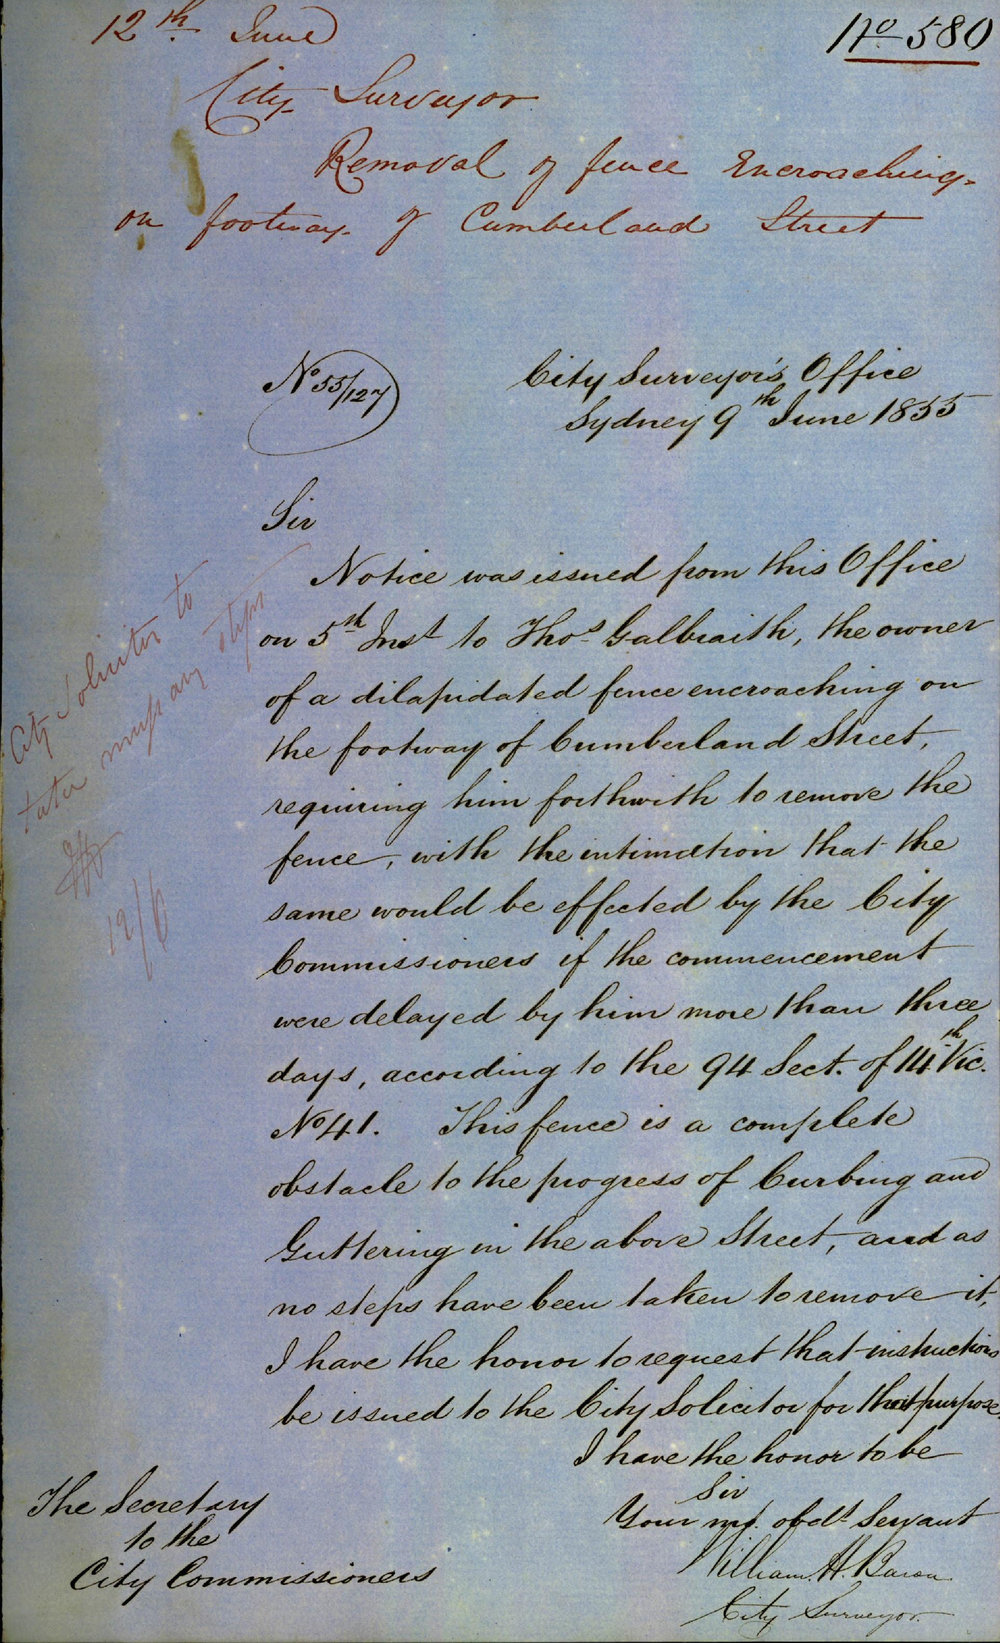 12th June
No 580
City Surveyor
Removal of fence Encroaching
on footway of Cumberland Street
No 55/127
City Surveyor's Office
Sydney 9th June 1855
Sir
Notice was issued from this Office
on 5th Inst to Thos Galbraith, the owner
of a dilapidated fence encroaching on
the footway of Cumberland Street,
requiring him forthwith to remove the
fence, with the intimation that the
same would be effected by the City
Commissioners if the commencement
were delayed by him more than three
days, according to the 94 Sect. of 14th Vic.
No 41. This fence is a complete
obstacle to the progress of Curbing and
Guttering in the above Street, and as
no steps have been taken to remove it,
I have the honor to request that instructions
be issued to the City Solicitor for that purpose.
I have the honor to be
Sir
Your mt. obdt Servant
William H. Baron
City Surveyor
The Secretary
to the
City Commissioners
City Solicitor to
take necessary steps
12/6